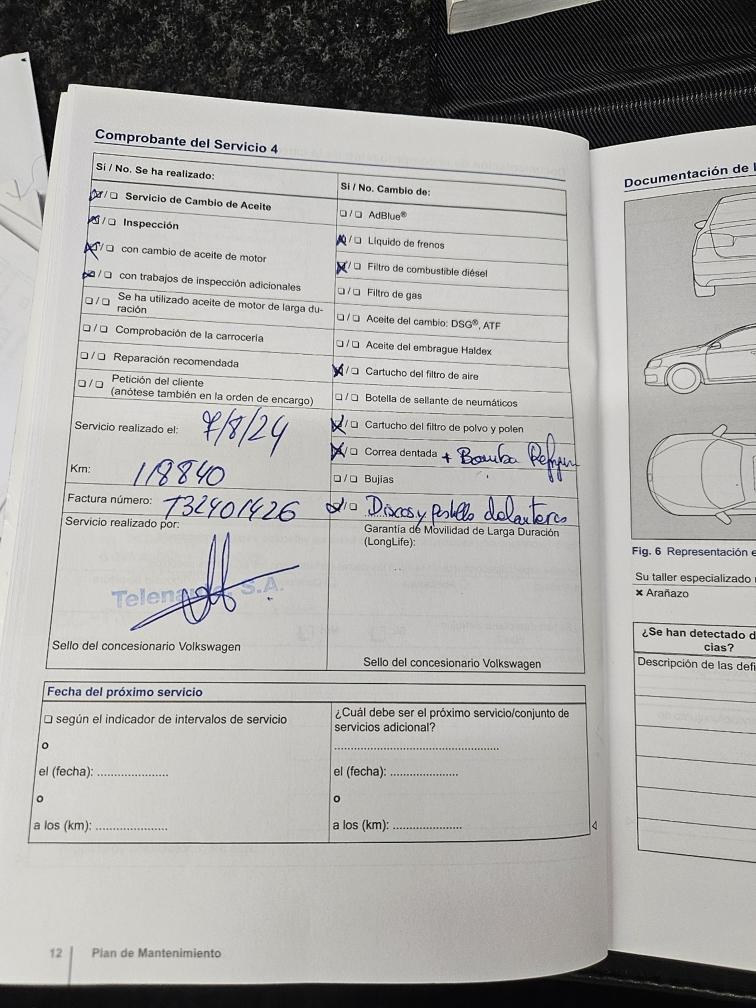 Comprobante del Servicio 4
Sí / No. Se ha realizado:
☒/☐ Servicio de Cambio de Aceite
☒/☐ Inspección
☒/☐ con cambio de aceite de motor
☒/☐ con trabajos de inspección adicionales
☐/☐ Se ha utilizado aceite de motor de larga du-
ración
☐/☐ Comprobación de la carrocería
☐/☐ Reparación recomendada
☐/☐ Petición del cliente
(anótese también en la orden de encargo)
Servicio realizado el: 7/8/24
Km: 118840
Factura número: T32401426
Servicio realizado por:
S.A.
Sello del concesionario Volkswagen
Sí / No. Cambio de:
☐/☐ AdBlue®
☒/☐ Líquido de frenos
☒/☐ Filtro de combustible diésel
☐/☐ Filtro de gas
☐/☐ Aceite del cambio: DSG®, ATF
☐/☐ Aceite del embrague Haldex
☒/☐ Cartucho del filtro de aire
☐/☐ Botella de sellante de neumáticos
☒/☐ Cartucho del filtro de polvo y polen
☒/☐ Correa dentada + Bomba
☐/☐ Bujías
☒/☐ Discos y delanteros
Garantía de Movilidad de Larga Duración
(LongLife):
Sello del concesionario Volkswagen
Fecha del próximo servicio
☐ según el indicador de intervalos de servicio
o
el (fecha): ....................
o
a los (km): ....................
¿Cuál debe ser el próximo servicio/conjunto de
servicios adicional?
..............................................
el (fecha): ...................
o
a los (km): ...................
12 Plan de Mantenimiento
Documentación de
Fig. 6 Representación
Su taller especializado
× Arañazo
¿Se han detectado
cias?
Descripción de las